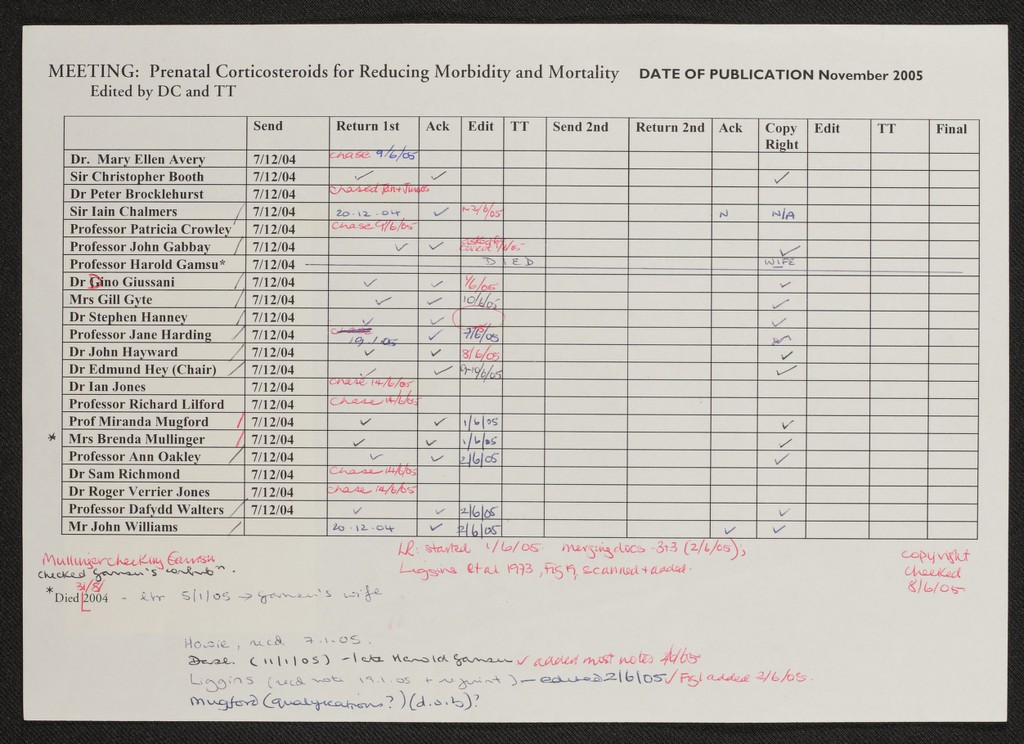 MEETING: Prenatal Corticosteroids for Reducing Morbidity and Mortality DATE OF PUBLICATION November 2005
Edited by DC and TT
Send Return 1st Ack Edit TT Send 2nd Return 2nd Ack Copy Right Edit TT Final
Dr. Mary Ellen Avery 7/12/04 chase 9/6/05
Sir Christopher Booth 7/12/04 ✓ ✓ ✓
Dr Peter Brocklehurst 7/12/04 chased Jan + Jun/05
Sir Iain Chalmers 7/12/04 20.12.04 ✓ 2/6/05 N N/A
Professor Patricia Crowley 7/12/04 chase 9/6/05
Professor John Gabbay 7/12/04 ✓ ✓ ✓
Professor Harold Gamsu* 7/12/04 DIED WIFE
Dr Dino Giussani 7/12/04 ✓ ✓ 1/6/05 ✓
Mrs Gill Gyte 7/12/04 ✓ ✓ 10/6/05 ✓
Dr Stephen Hanney 7/12/04 ✓ ✓ ✓
Professor Jane Harding 7/12/04 chase 19.1.05 ✓ 7/6/05 ✓
Dr John Hayward 7/12/04 ✓ ✓ 8/6/05 ✓
Dr Edmund Hey (Chair) 7/12/04 ✓ ✓ 9-10/6/05 ✓
Dr Ian Jones 7/12/04 chase 14/6/05
Professor Richard Lilford 7/12/04 chase 14/6/05
Prof Miranda Mugford 7/12/04 ✓ ✓ 1/6/05 ✓
* Mrs Brenda Mullinger 7/12/04 ✓ ✓ 1/6/05 ✓
Professor Ann Oakley 7/12/04 ✓ ✓ 2/6/05 ✓
Dr Sam Richmond 7/12/04 chase 14/6/05
Dr Roger Verrier Jones 7/12/04 chase 14/6/05
Professor Dafydd Walters 7/12/04 ✓ ✓ 2/6/05 ✓
Mr John Williams 20.12.04 ✓ 2/6/05 ✓ ✓
LR: started 1/6/05 merging docs 3+3 (2/6/05),
Liggins et al 1973, Fig 9, scanned + added.
copyright
checked
8/6/05
Mullinger checking Gamsu
checked Gamsu's contribn.
31/8/
*Died 2004 - ltr 5/1/05 → Gamsu's wife
Howie, recd 7.1.05.
Dase. (11/1/05) - late Harold Gamsu ✓ added most notes
Liggins (recd note 19.1.05 + reprint) - edited 2/6/05 / Fig 1 added 2/6/05.
Mugford (qualifications?) (d.o.b)?